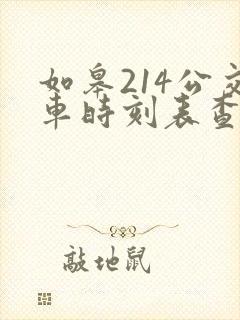 如皋214公交
車時刻表查
敲地鼠